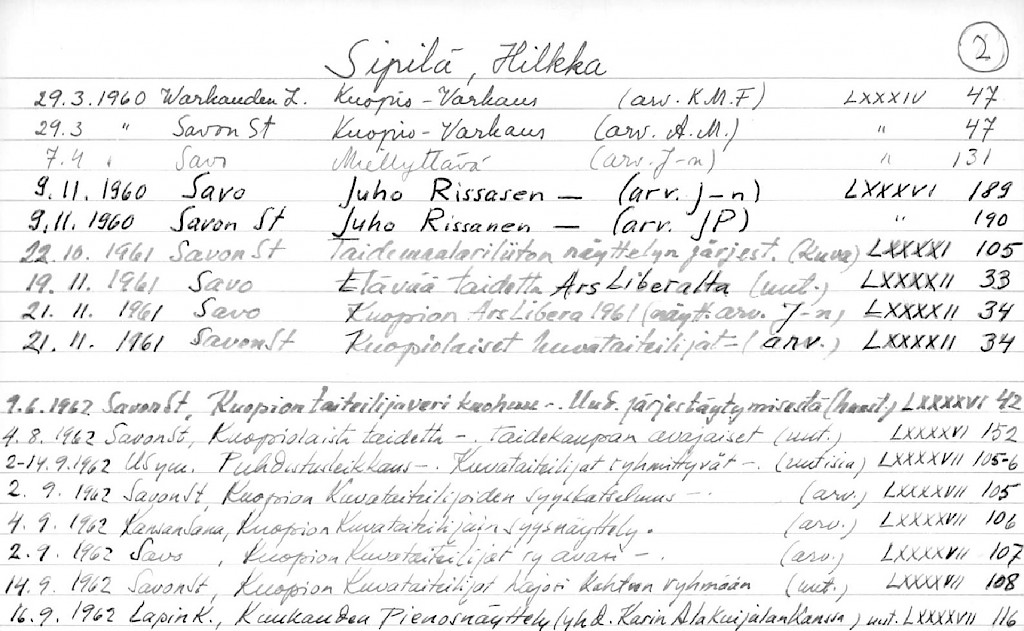 2
Sipilä, Hilkka
29.3.1960 Warkauden L. Kuopio - Varkaus (arv. K.M.F) LXXXIV 47
29.3 " Savon St Kuopio - Varkaus (arv. A.M.) " 47
7.4 " Savo Miellyttävä (arv. J-n) " 131
9.11.1960 Savo Juho Rissasen — (arv. J-n) LXXXVI 189
9.11.1960 Savon St Juho Rissanen — (arv. JP) " 190
22.10.1961 Savon St Taidemaalariliiton näyttelyn järjest. (kuva) LXXXXI 105
19.11.1961 Savo Elävää taidetta Ars Liberalta (uut.) LXXXXII 33
21.11.1961 Savo Kuopion Ars Libera 1961 (näytt. arv. J-n) LXXXXII 34
21.11.1961 Savon St Kuopiolaiset kuvataiteilijat - (arv.) LXXXXII 34
9.6.1962 Savon St, Kuopion taiteilijaveri kuohuu -. Uud. järjestäytymisestä (haast.) LXXXXVI 42
4.8.1962 Savon St, Kuopiolaista taidetta -. taidekaupan avajaiset (uut.) LXXXXVI 152
2-14.9.1962 USuom. Puhdistusleikkaus -. Kuvataiteilijat ryhmittyvät -. (uutisia) LXXXXVII 105-6
2.9.1962 Savon St, Kuopion Kuvataiteilijoiden syyskatselmus -. (arv.) LXXXXVII 105
4.9.1962 Kansan Sana, Kuopion Kuvataiteilijain syysnäyttely. (arv.) LXXXXVII 106
2.9.1962 Savo, Kuopion Kuvataiteilijat ry avasi -. (arv.) LXXXXVII 107
14.9.1962 Savon St, Kuopion Kuvataiteilijat hajosi kahteen ryhmään (uut.) LXXXXVII 108
16.9.1962 Lapin K., Kuukauden Pienoisnäyttely (yhd. Karin Alakuijalan Kanssa) uut. LXXXXVII 116